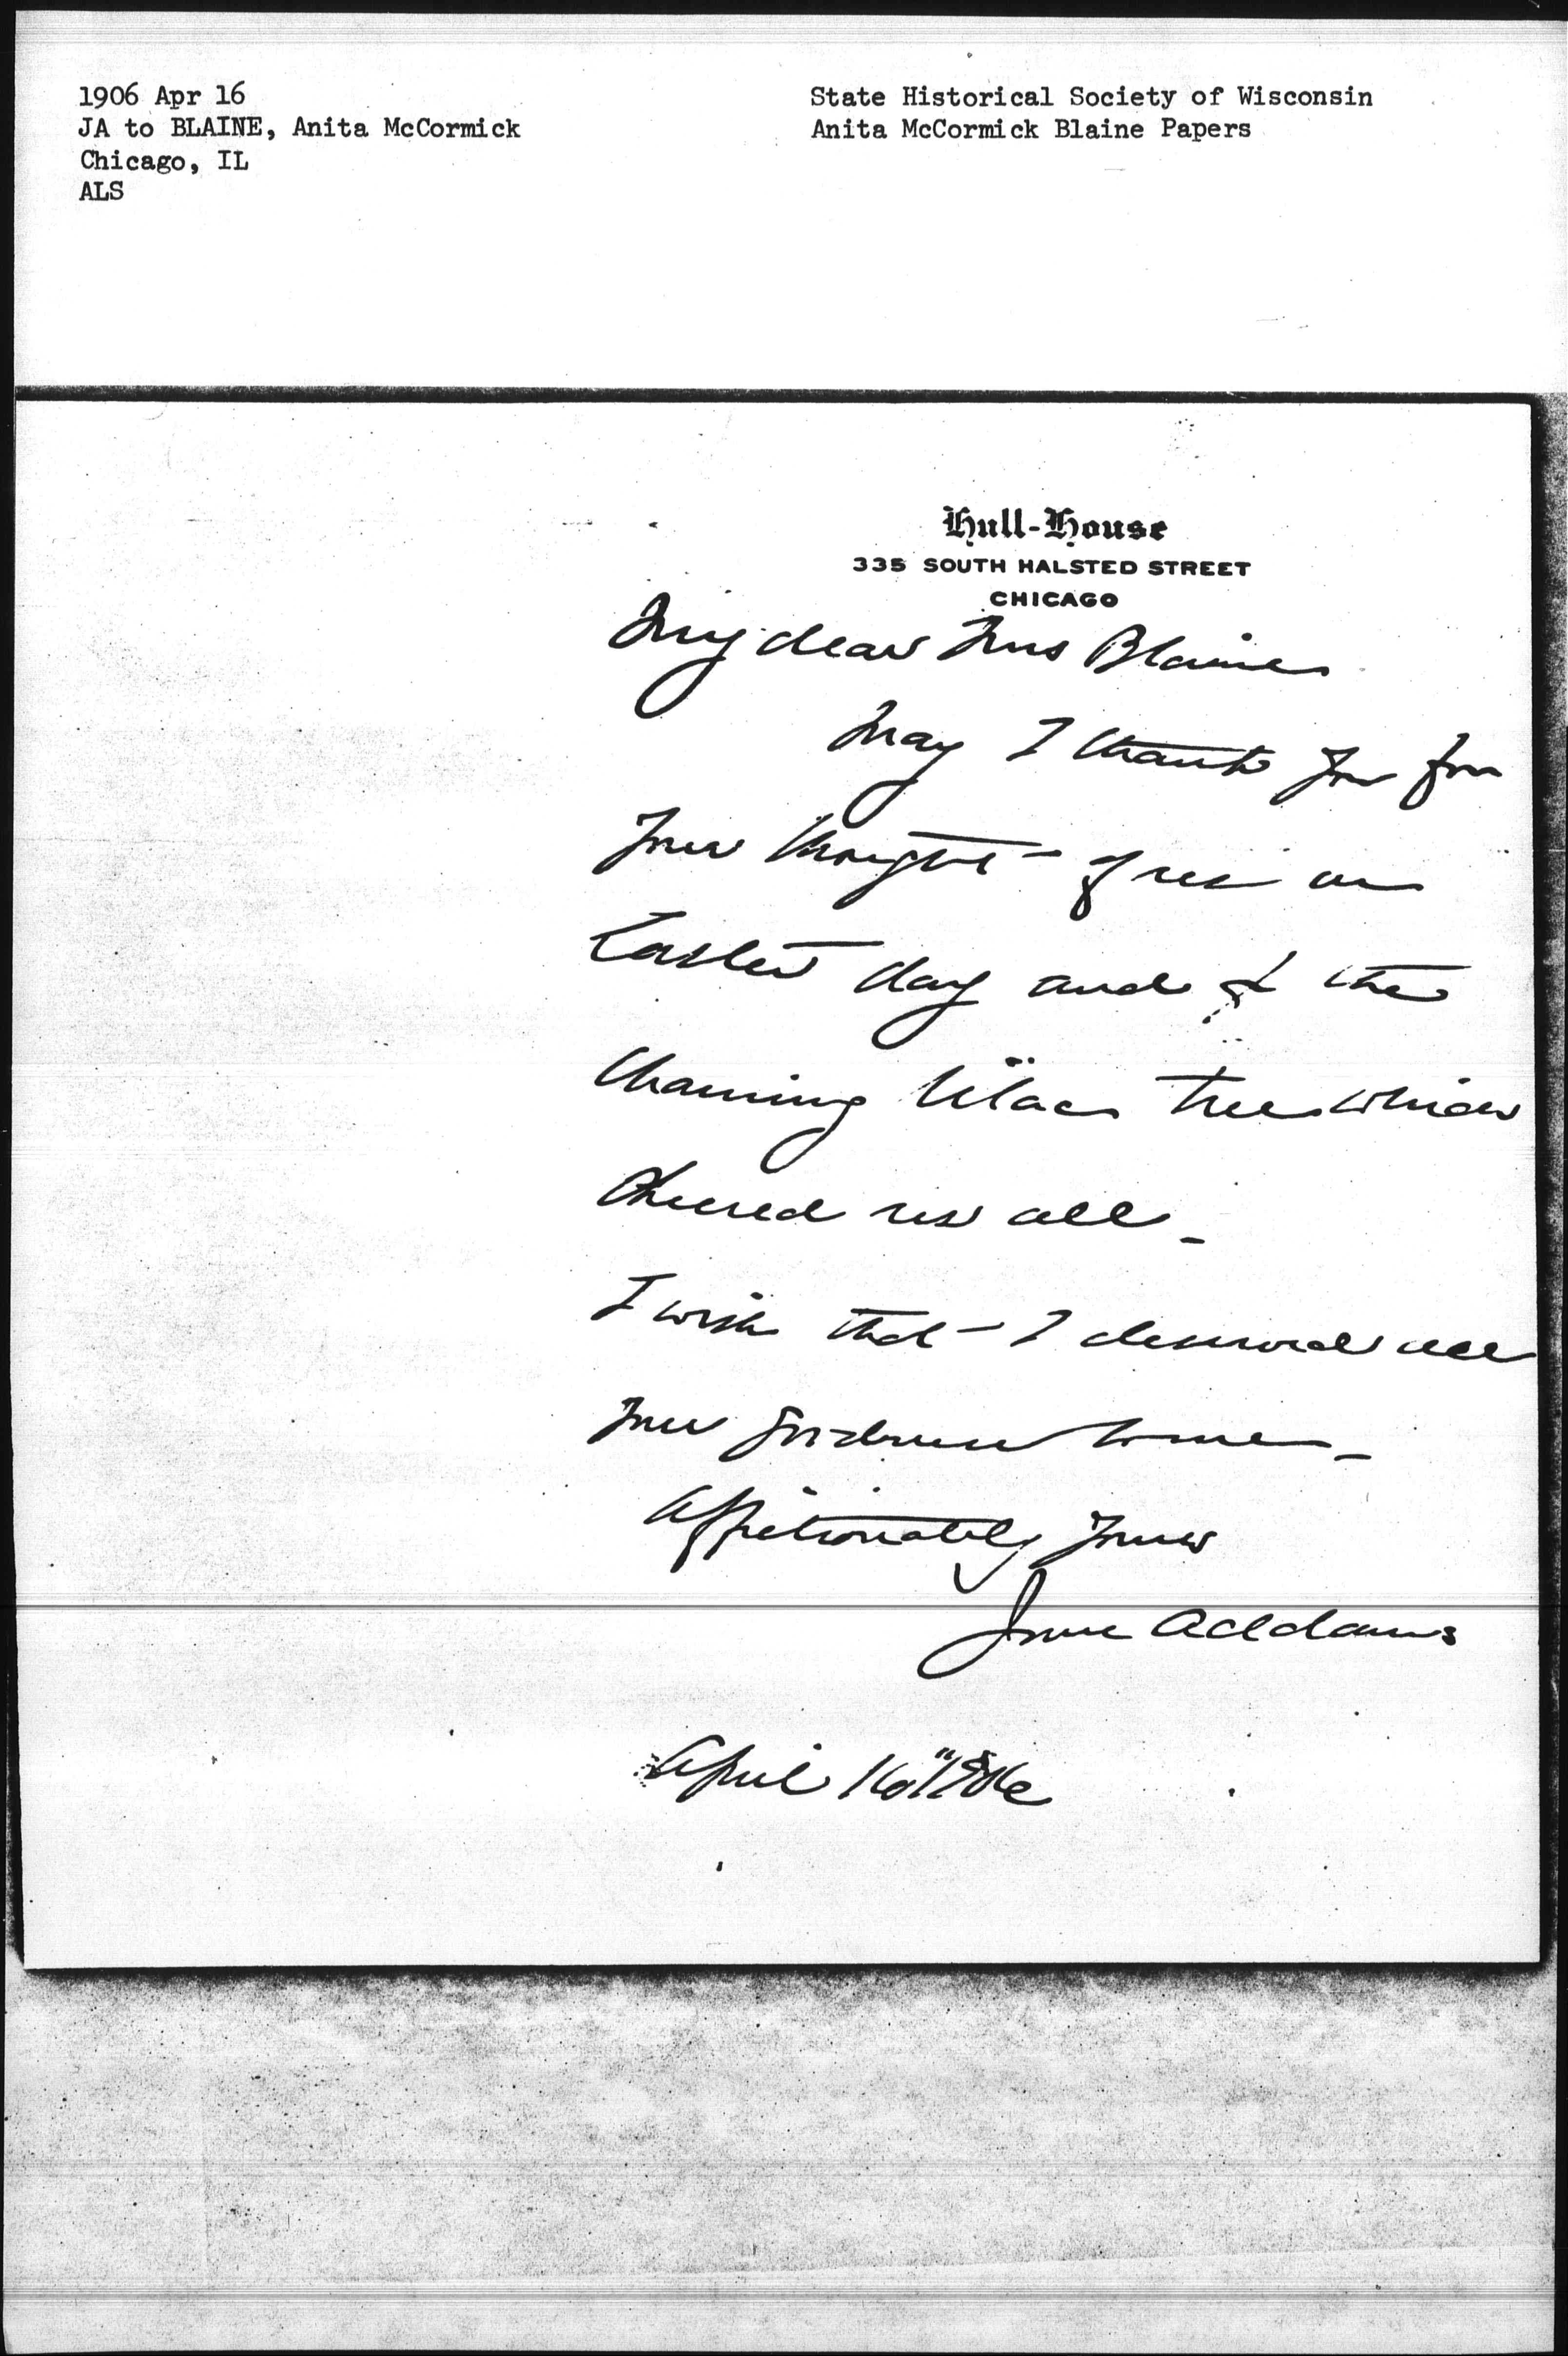 1906 Apr 16
JA to BLAINE, Anita McCormick
Chicago, IL
ALS
State Historical Society of Wisconsin
Anita McCormick Blaine Papers
Hull-House
335 SOUTH HALSTED STREET
CHICAGO
My dear Mrs Blaine
May I thank you for
your thought of us on
Easter day and of the
charming lilac tree which
cheered us all –
I wish that I deserved all
your goodness to me –
Affectionately yours
Jane Addams
April 16" 1906